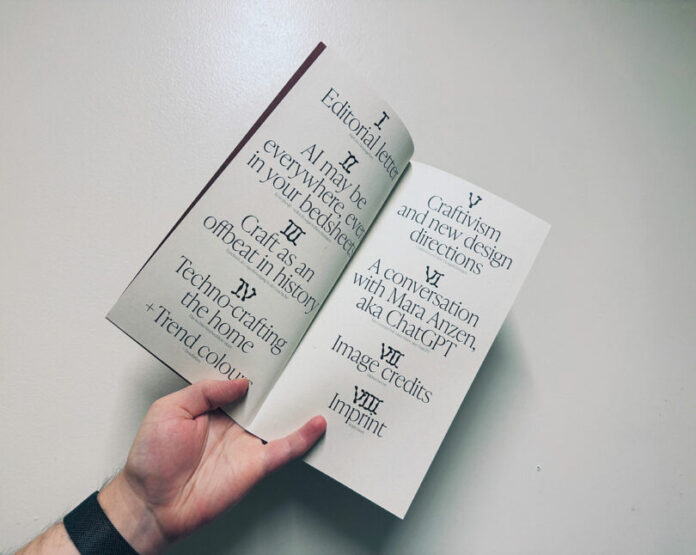 I
Editorial letter
II
AI may be
everywhere, even
in your bedsheets
III
Craft as an
offbeat in history
IV
Techno-crafting
the home
+Trend colours
V
Craftivism
and new design
directions
VI
A conversation
with Mara Anzen,
aka ChatGPT
VII
Image credits
VIII
Imprint